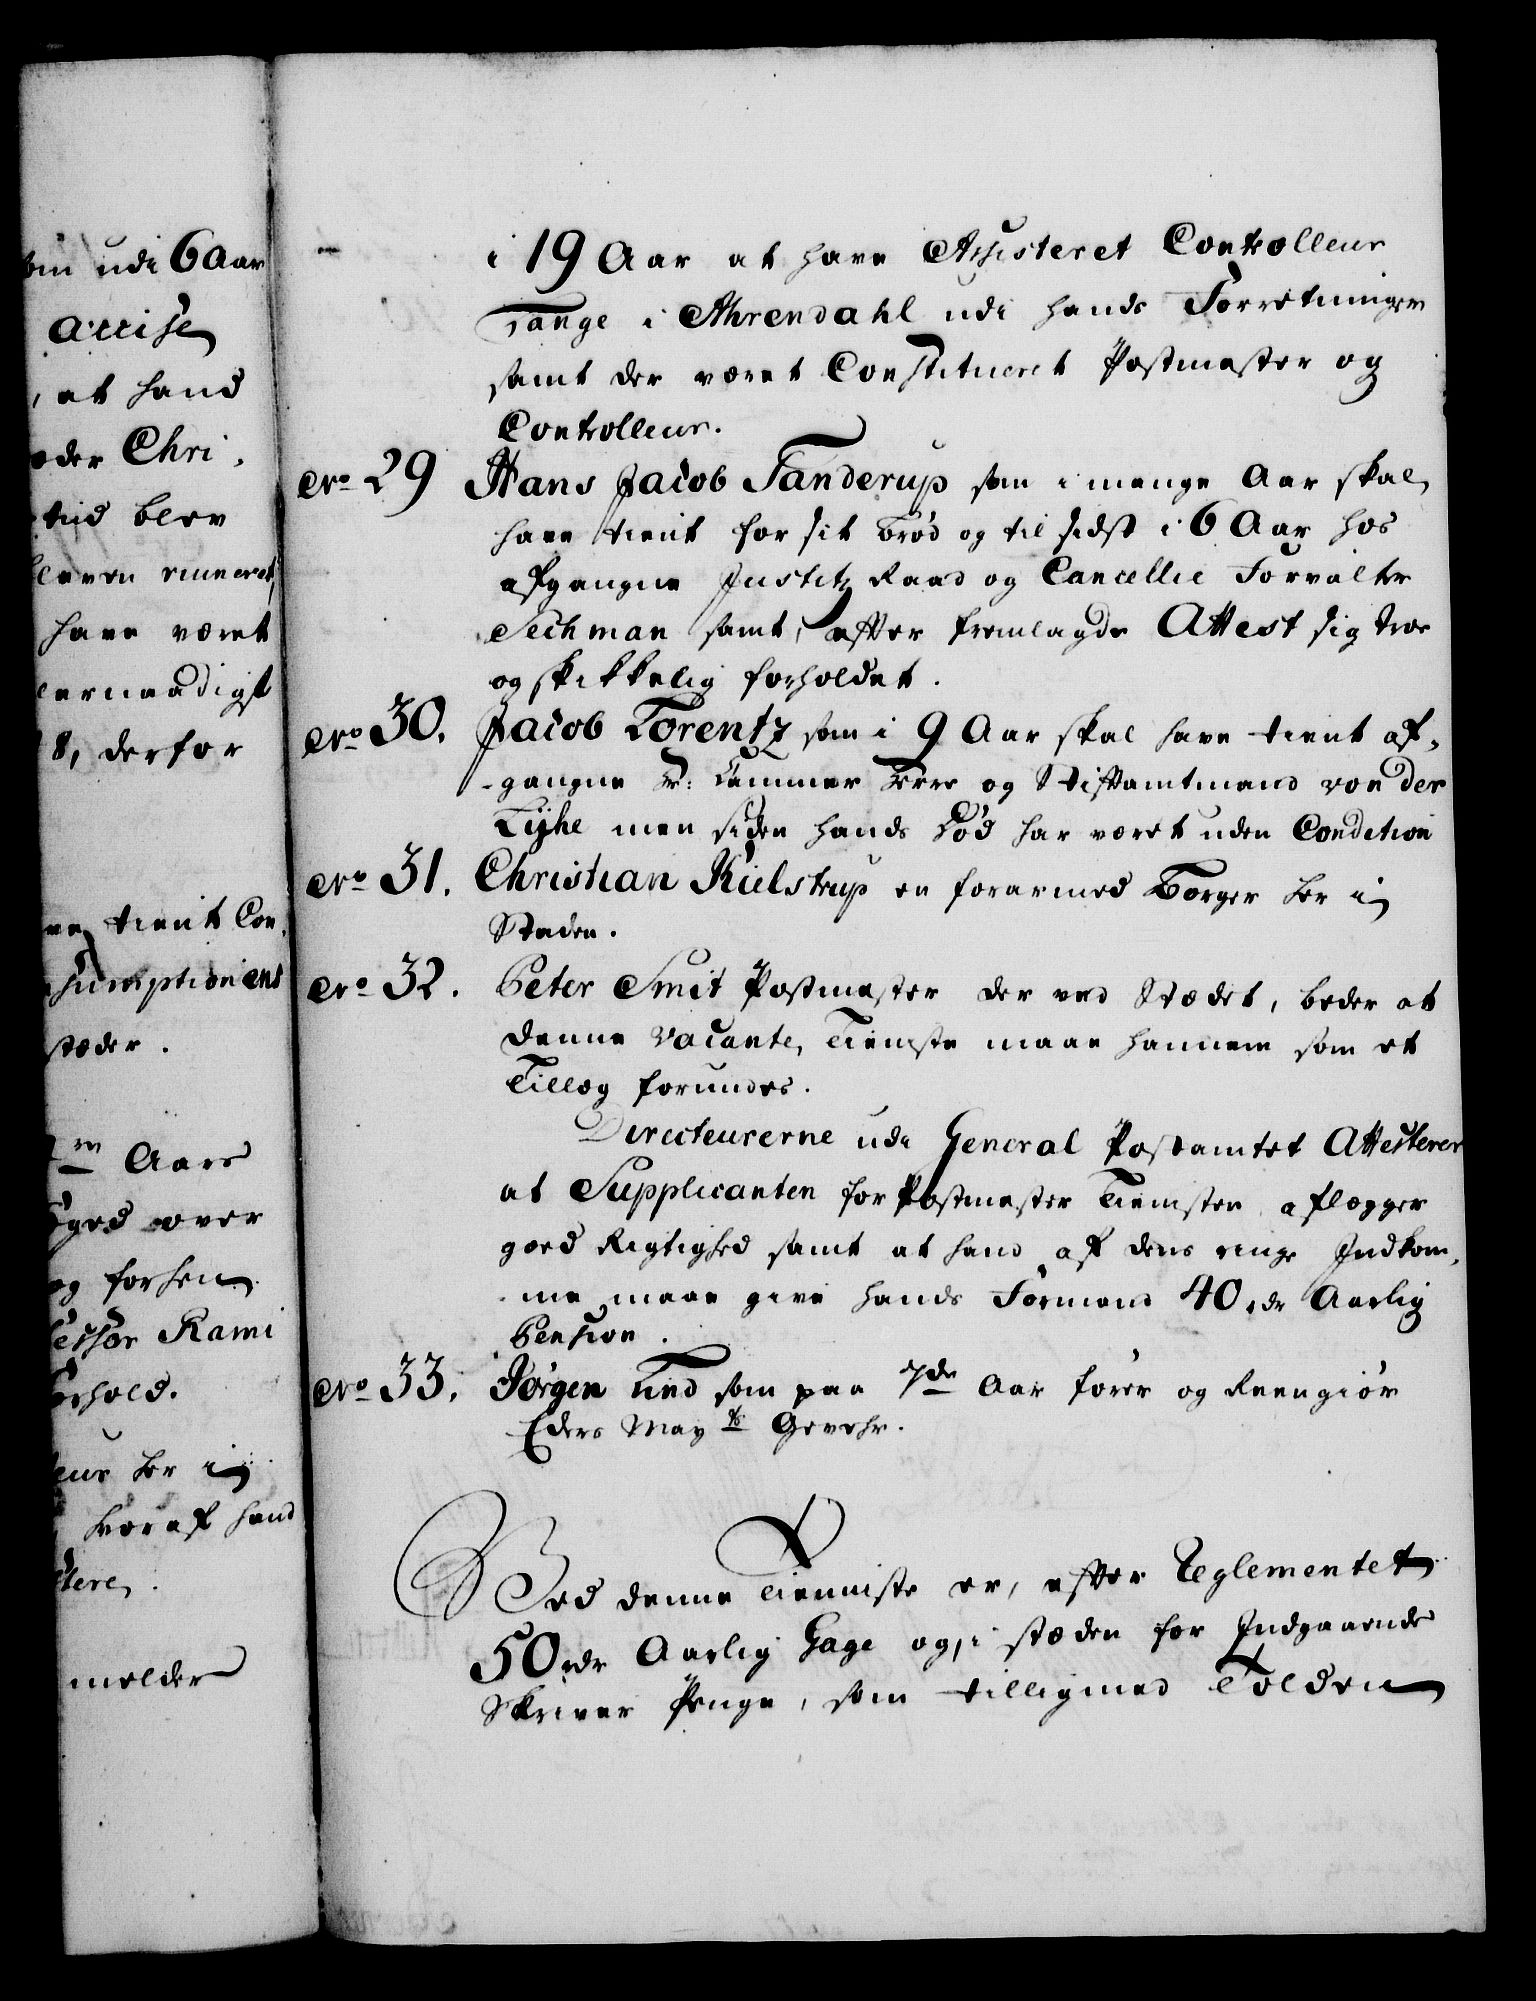 om udi 6 Aar
Accise
, at hand
eder Chri-
tid blev
bleven rinneret,
have været
lernaadigst
8, derfor
tient Con-
sumptionens
stæder.
Aars
oged over
og forhen
essor Rami
orhold.
eur her i
hvoraf hand
stere.
melder
i 19 Aar at have Assisteret Controlleur
Tange i Ahrendahl udi hands Forretninger
samt der været Constitueret Postmester og
Controlleur.
Nro 29 Hans Jacob Tanderup som i mange Aar skal
have tient for sit brød og til sidst i 6 Aar hos
afgangne Justitz Raad og Cancellie Forvalter
Sechman samt, efter fremlagde Attest sig troe
og skikkelig forholdet.
Nro 30. Jacob Lorentz som i 9 Aar skal have tient af-
gangne Hr: Cammer Herre og Stiftamtmand von der
Lÿhe men siden hands Död har været uden Condition
Nro 31. Christian Kielstrup en forarmed Borger her i
Staden.
Nro 32. Peter Smit Postmester der ved Stædet, beder at
denne vacante Tieniste maae hannem som et
Tillæg forundes.
Directeurerne udi General Postamtet Attesterer
at Supplicanten for Postmester Tienisten aflægger
goed Rigtighed samt at hand af dens ringe Indkom-
me maae give hands Formand 40 rdr Aarlig
Pension.
Nro 33. Jørgen Lind som paa 7de Aar fører og Reengiør
Eders Mayts Gevehr.
Ved denne Tienniste er, efter Reglementet
50 rdr Aarlig Gage og, i stæden for Indgaaende
Skriver Penge, som tilligemed Tolden